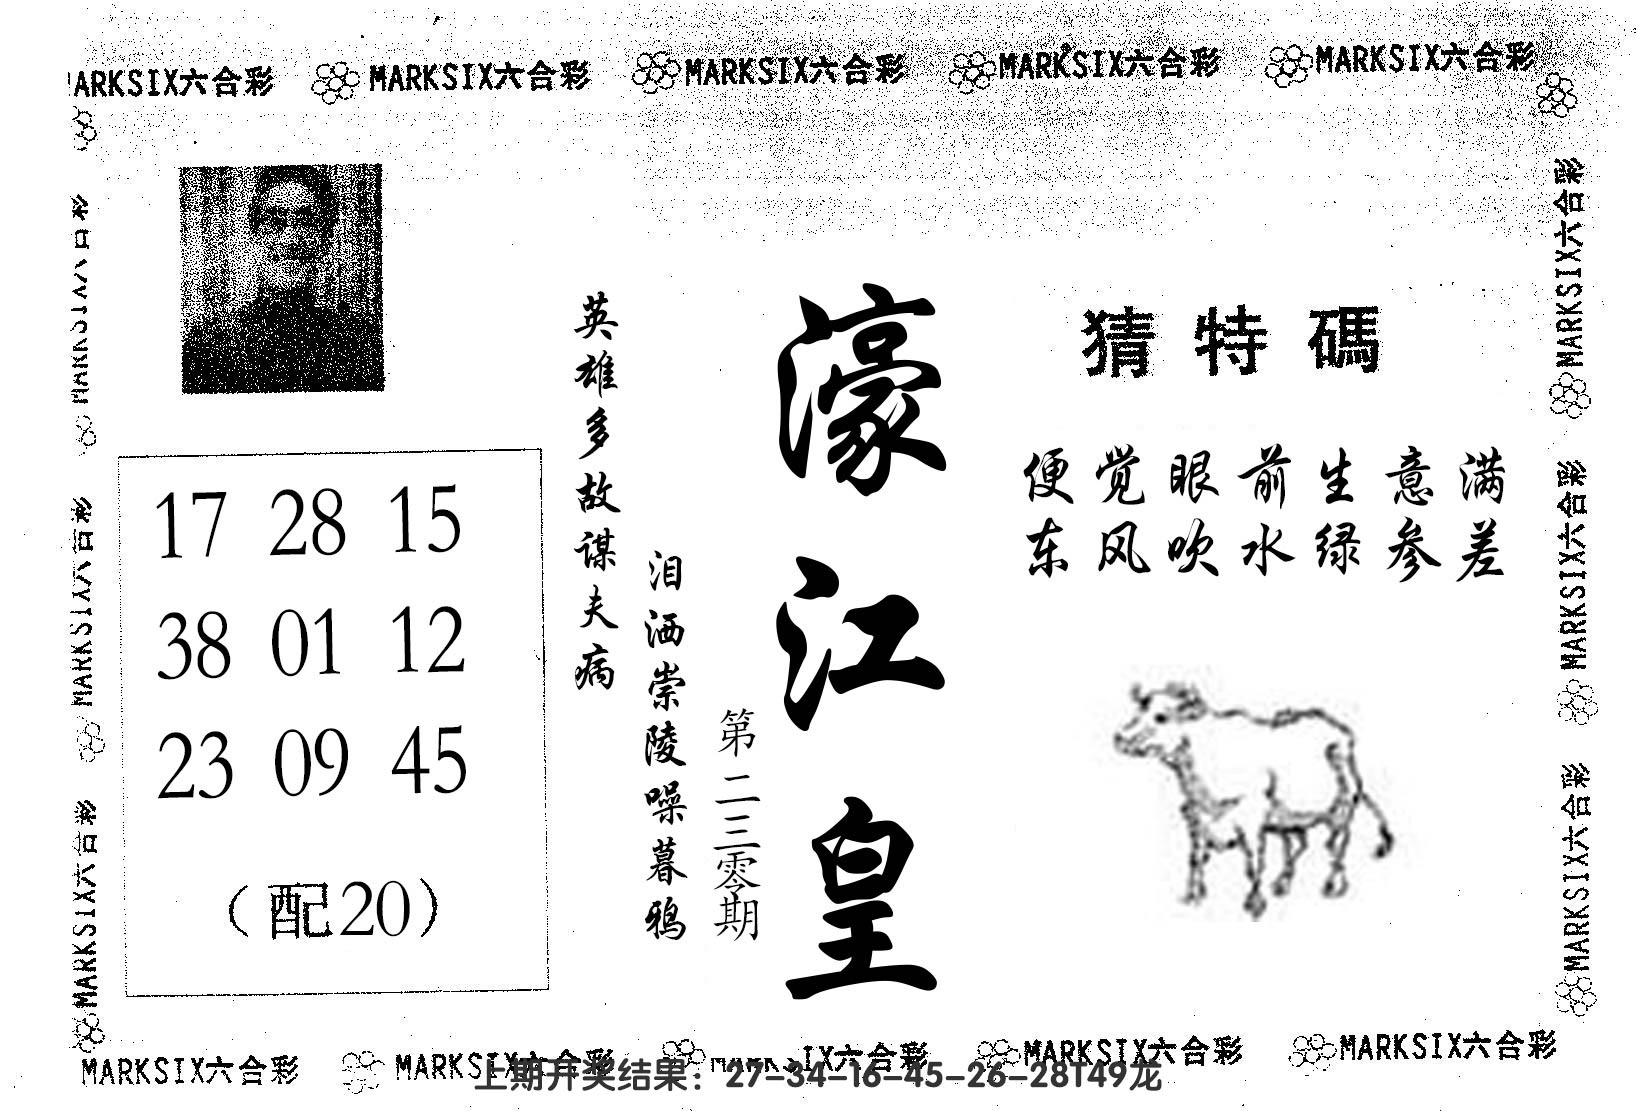 MARKSIX六合彩 MARKSIX六合彩 MARKSIX六合彩 MARKSIX六合彩 MARKSIX六合彩
猜特碼
便觉眼前生意满
东风吹水绿参差
濠江皇
第二三零期
英雄多故谋夫病
泪洒崇陵噪暮鸦
17 28 15
38 01 12
23 09 45
（配20）
MARKSIX六合彩
MARKSIX六合彩
MARKSIX六合彩
MARKSIX六合彩
MARKSIX六合彩
MARKSIX六合彩
MARKSIX六合彩 MARKSIX六合彩 MARKSIX六合彩 MARKSIX六合彩 MARKSIX六合彩
上期开奖结果：27-34-16-45-26-28T49龙